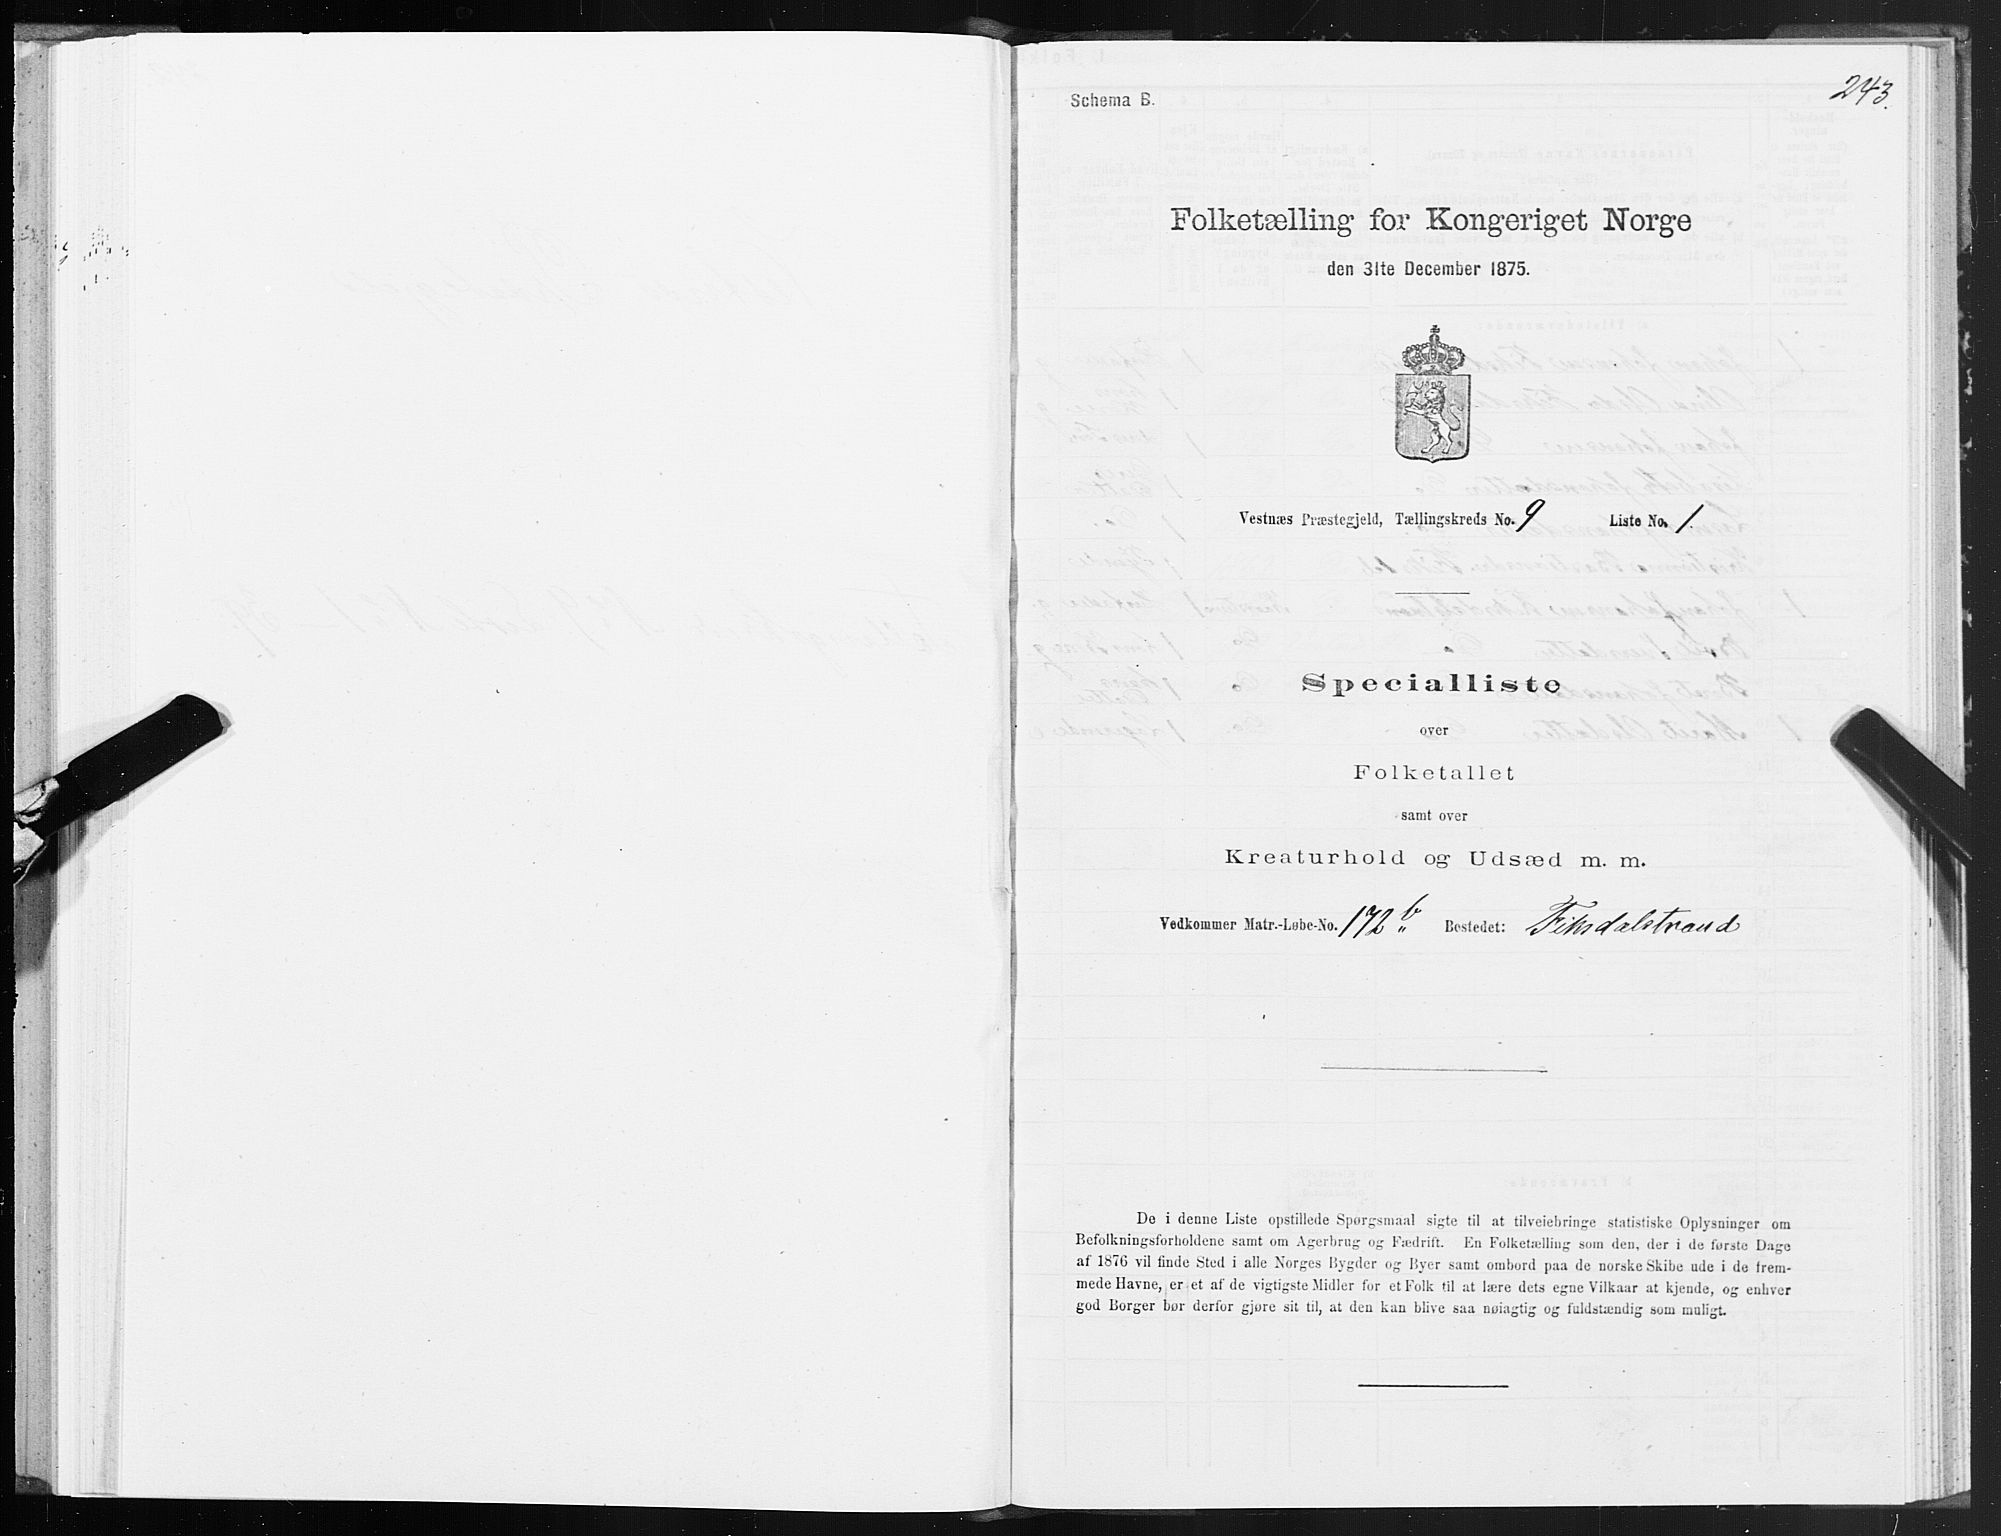 243.
Schema B.
Folketælling for Kongeriget Norge
den 31te December 1875.
Vestnæs Præstegjeld, Tællingskreds No. 9 Liste No. 1.
Specialliste
over
Folketallet
samt over
Kreaturhold og Udsæd m. m.
Vedkommer Matr.-Løbe-No. 172 b „ Bostedet: Fiksdalstrand
De i denne Liste opstillede Spørgsmaal sigte til at tilveiebringe statistiske Oplysninger om
Befolkningsforholdene samt om Agerbrug og Fædrift. En Folketælling som den, der i de første Dage
af 1876 vil finde Sted i alle Norges Bygder og Byer samt ombord paa de norske Skibe ude i de frem-
mede Havne, er et af de vigtigste Midler for et Folk til at lære dets egne Vilkaar at kjende, og enhver
god Borger bør derfor gjøre sit til, at den kan blive saa nøiagtig og fuldstændig som muligt.